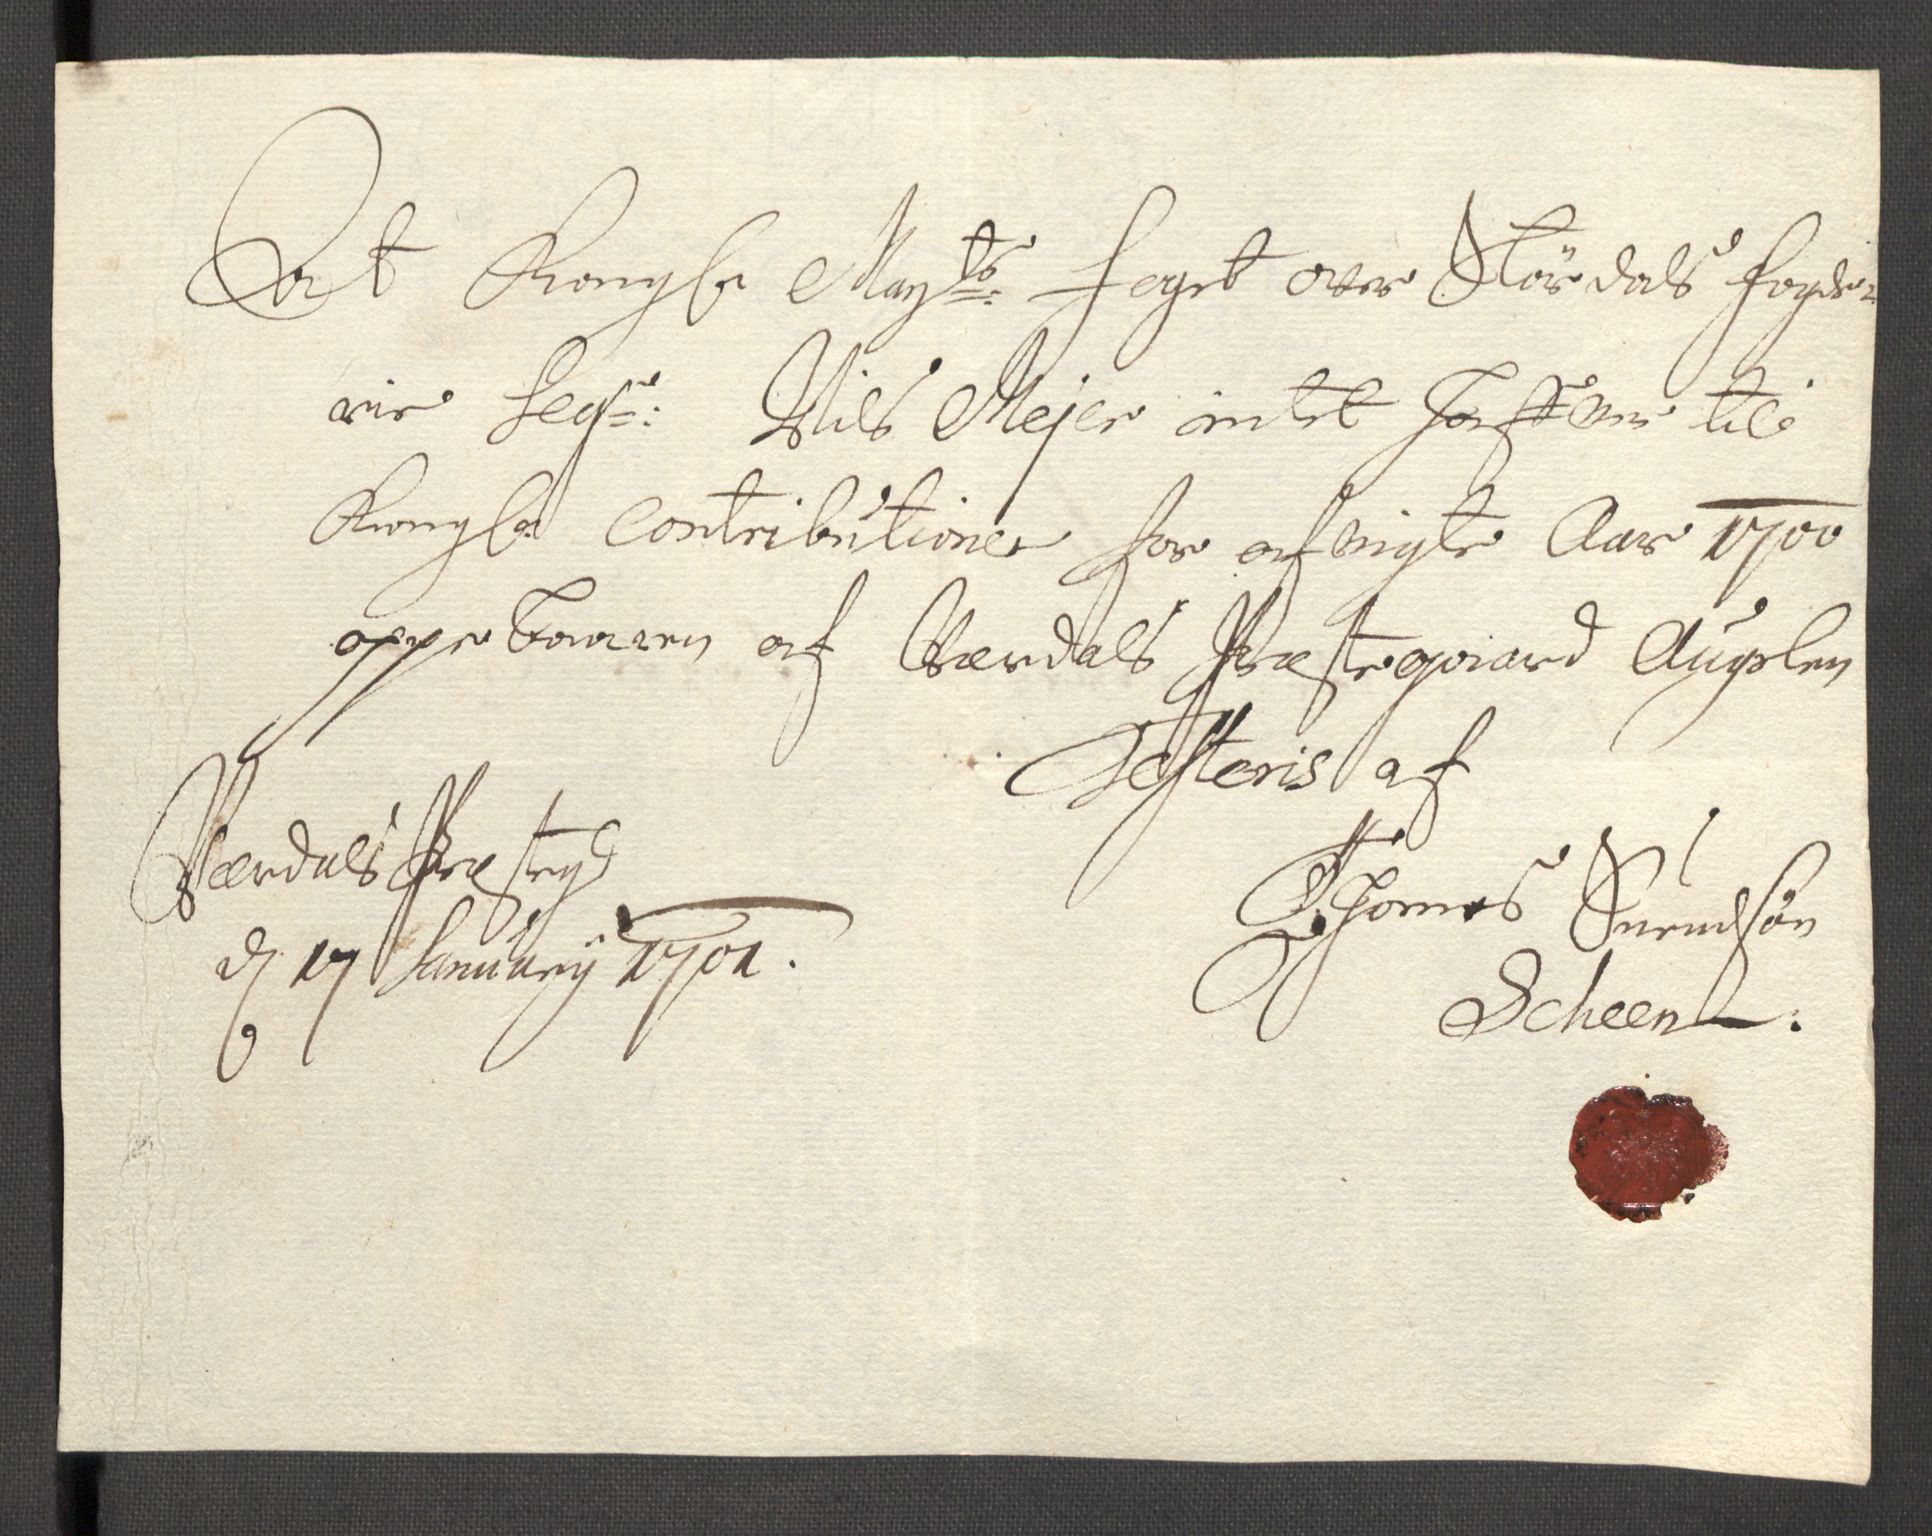 At Kongl: May:ts foget over Størdals fogde-
rie Seg:r Nils Mejer intet hafver til
Kongl: Contributioner for afvigte Aar 1700
oppebaaren af Værdals Præstegaard Augelen
Testeris af
Værdals Præstegd
d 17 January 1701.
Thomas Svendsøn
Scheen.